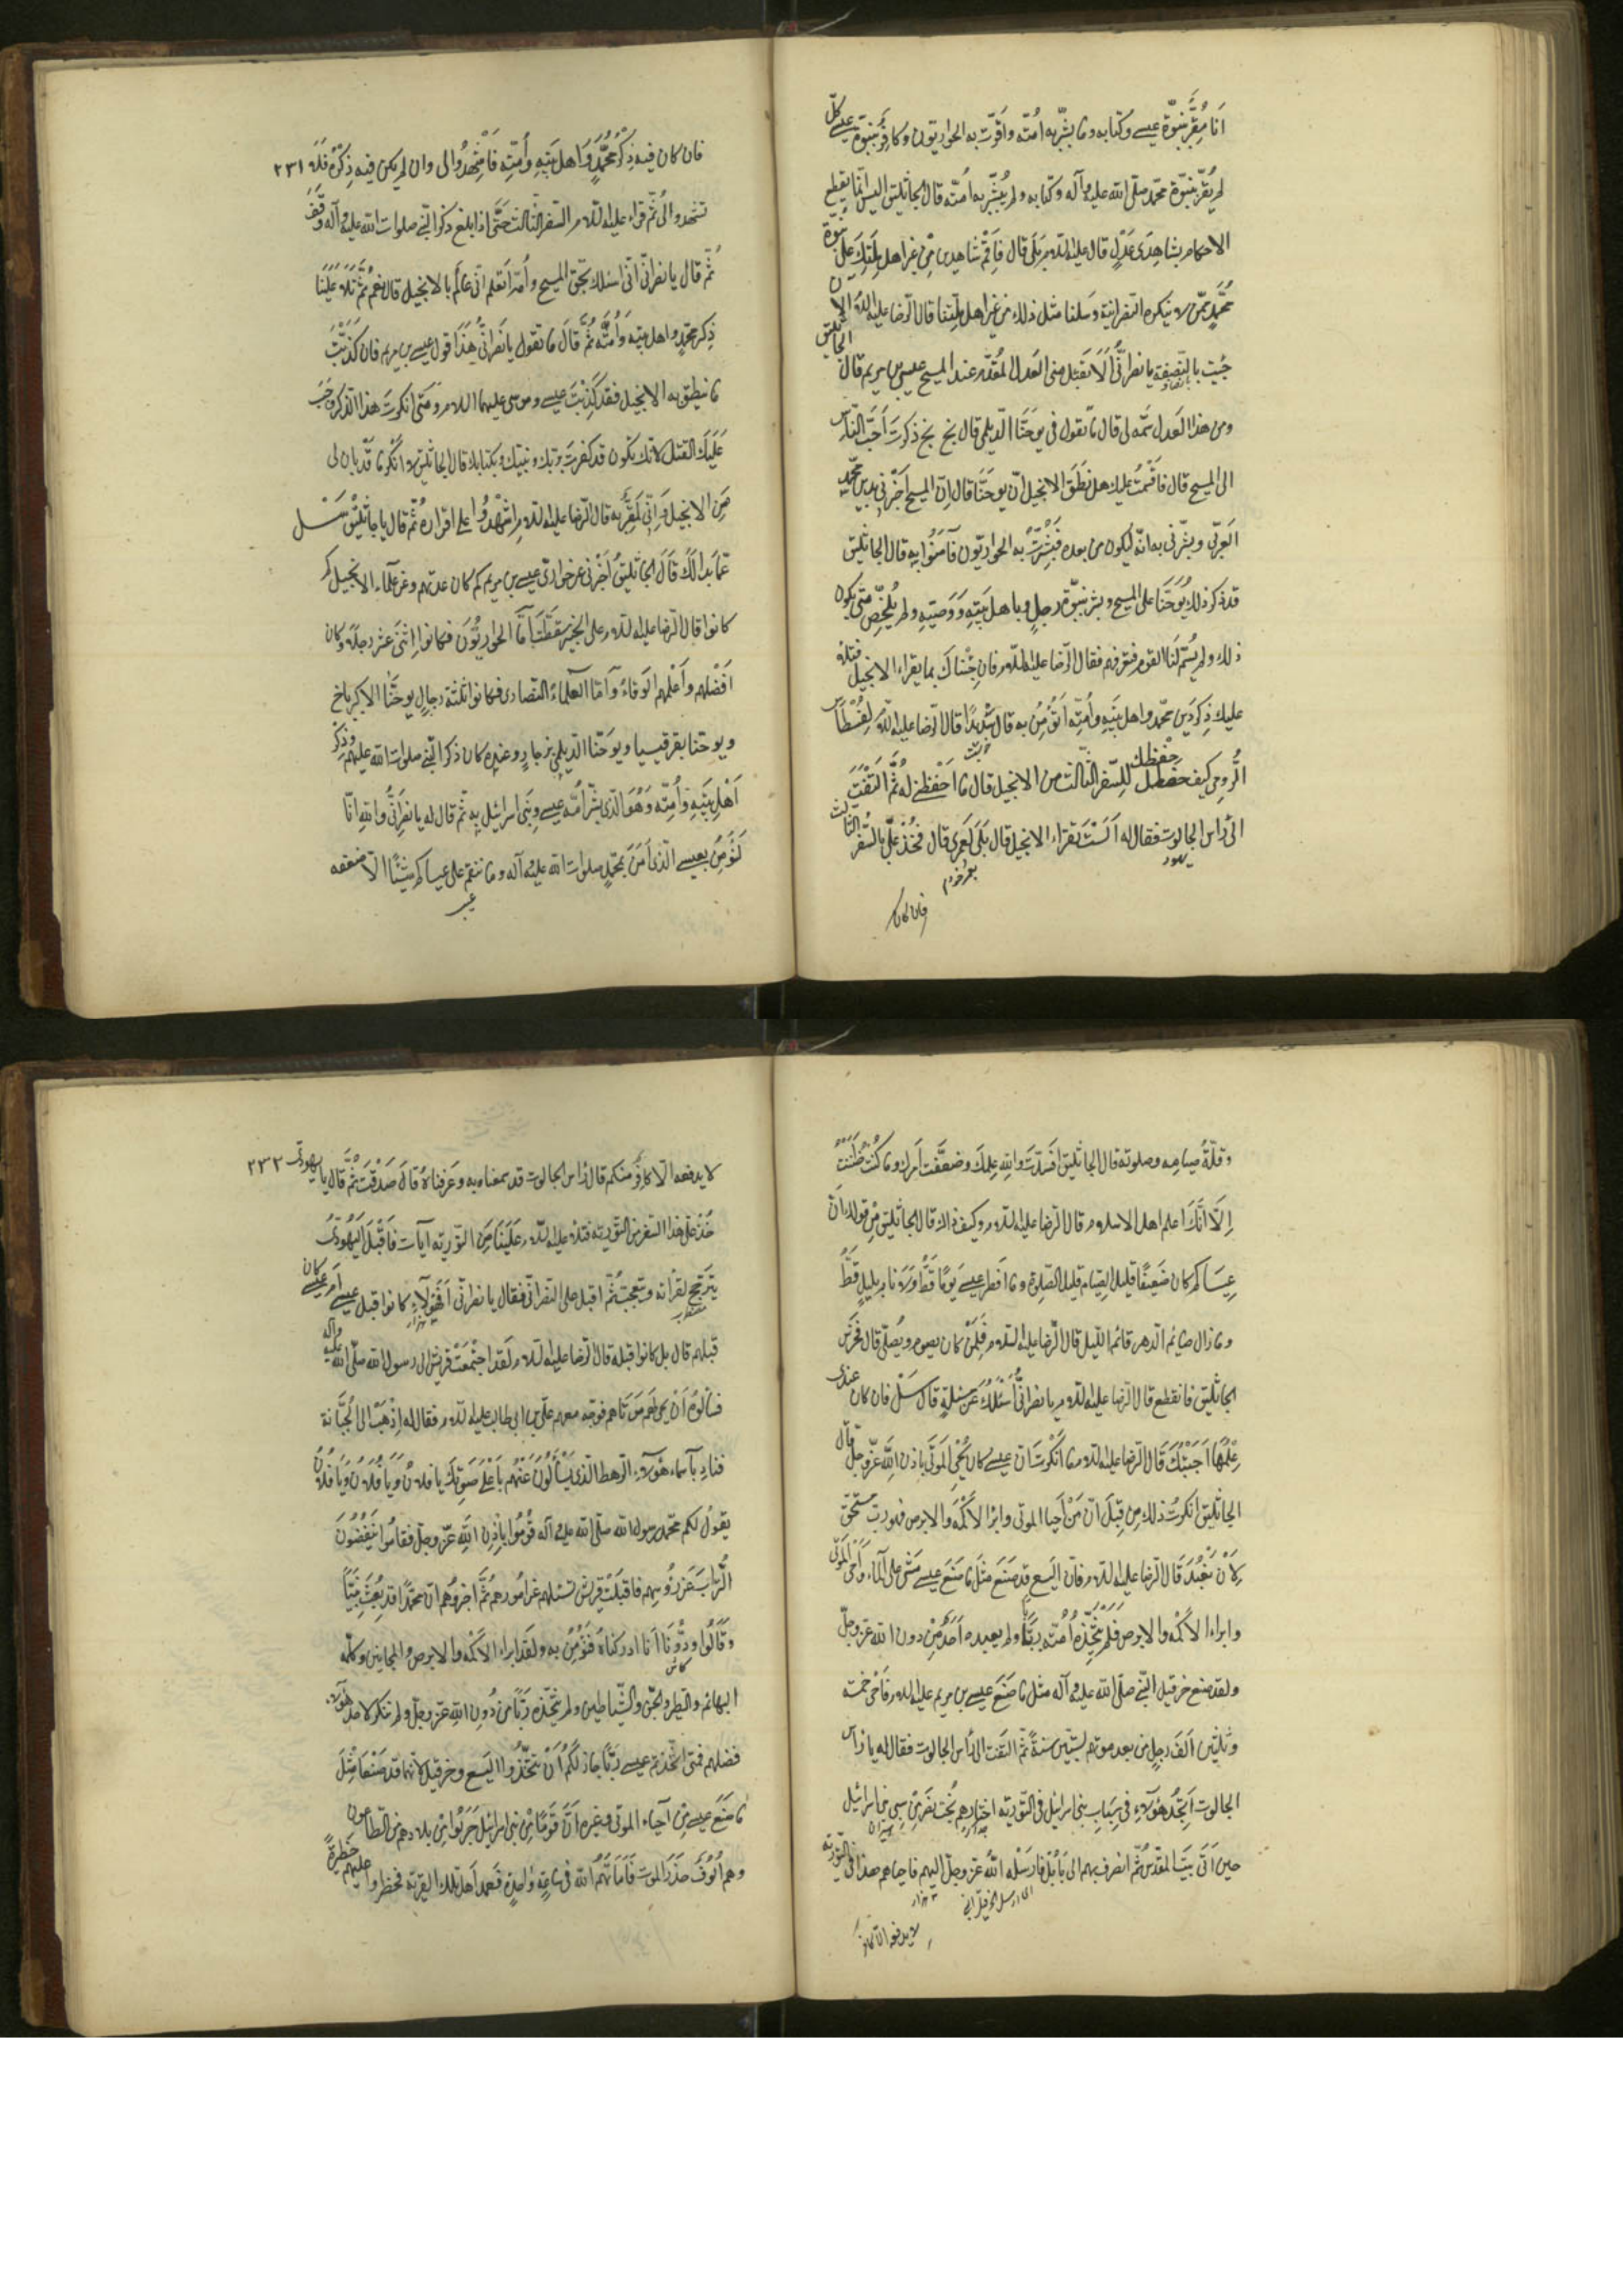 انا مُقِرٌّ بنبوّة عيسى وكتابه وما بشّر به اُمّته واَقرّت به الحواريّون وكافِرٌ بنبوّة عيسى كلّ
لم يُقرّ بنبوّة محمّد صلّى الله عليه وآله وكتابه ولم يُبشّر به اُمّته قال الجاثليق اليس انّما يقطع
الاحكام بشاهِدَى عَدْلٍ قال عليه السّلام بَلَى قال فَاَقِمْ شاهدين مِن غير اهل مِلّتِكَ على نبوّة
مُحمّدٍ ممّن لا ينكره النّصرانية وسَلنا مثل ذلك من غير اهل ملّتنا قال الرّضا عليه السّلام الان
جِئت بالنّصفة يا نصرانىُّ اَلا تَقبَل منى العَدل المُقدّم عند المسيح عيسى بن مريم قال الجاثليق
ومن هذا العَدل سَمّه لى قال ما تقول فى يوحَنّا الدّيلمى قال بخ بخ ذكرت اَحَبّ النّاس
الى المسيح قال فاَقسَمتُ عليك هل نَطَقَ الانجيل انّ يوحَنّا قال اِنّ المسيح اَخبَرنى بدين محمّدٍ
العَربّى وبشّرنى به انّه يكون من بعده فبَشّرتُ به الحواريّون فآمَنُوا بِهِ قال الجاثليق
قد ذكر ذلك يُوحَنّا على المسيح وبشر بنبوّة رجلٍ وباهل بَيتِهِ وَوَصيّهِ ولم يُلخّص متى يكون
ذلك ولم يُسَمّ لَنَا القوم فنعرفهم فقال الرّضا عليه السّلام فان جِئناك بما يقراء الانجيل فتلا
عليك ذِكر دين محمّد واهل بَيتِهِ واُمّتِهِ اَتُؤمِنُ به قال شديدًا قال الرّضا عليه السّلام لِقسطاس
الرُّومىّ كيف حفظك للسّفر الثّالث من الانجيل قال ما اَحْفَظَنِى له ثُمَّ التَفَتَ
الى رأس الجالوت فقال له اَلَستَ تَقراء الانجيل قال بَلَى لَعَمرى قال فخُذ علىّ بالسّفر الثالث
يهود
فان كان
فان كان فيه ذِكْرُ مُحمَّدٍ وَاهل بَيتِهِ وأُمّتِهِ فَاشْهَدُوا لى وان لم يكن فيه ذِكْرُهُ فَلا ٢٣١
تشهدوا لى ثُمّ قراء عليه السّلام السّفر الثّالث حَتّى اذا بلغ ذكر النّبى صلوات الله عليه وآله وَقَفَ
ثُمّ قال يا نصرانّى انّى اسئلك بحق المسيح واُمّه اَتعلم انّى عالمٌ بالانجيل قال نعم ثُمّ تَلا عَلَيْنَا
ذِكر محمّدٍ واهل بيته وَاُمّته ثُمّ قَالَ ما تقول يا نصرانىّ هَذَا قول عيسى بن مريم فان كَذّبْتَ
ما ينطق به الانجيل فقد كَذّبْتَ عيسى وموسى عليهما السلام ومَتى انكرتَ هذا الذكر وَجَبَ
عَلَيكَ القتل لانك تكون قد كفرت بربّك ونبيّك وبكتابك قال الجاثليق لا اُنْكِرُ ما قَد بَان لى
مِن الانجيل وَ اِنّى لَمُقِرٌّ به قال الرّضا عليه السّلام اِشهَدُوا على اقراره ثُمّ قال يا جاثليق سَل
عَمّا بدا لَكَ قَالَ الجاثليقُ اَخْبِرنى عن حوارىّ عيسى بن مريم كم كان عدّتهم وعن عُلَمآء الانجيل كم
كانوا قال الرّضا عليه السّلام على الخبير سَقَطْتَ اَمّا الحواريُّونَ فكانوا اِثنَى عشر رجلاً وكان
اَفضَلهم واَعلمهم اَلوقاء وَ اَمّا العُلماءُ النّصارى فكانوا ثلثة رجالٍ يوحَنّا الاكبر باخ
ويوحَنّا بقرقيسيا ويوحَنّا الدّيلمىّ بزجارٍ وعنده كان ذكر النّبى صلوات الله عليهم وذِكرُ
اَهْلِ بَيتِهِ واُمّتِه وَهُوَ الّذى بشّر اُمّة عيسى وبَنى اسرائيل بِهِ ثُمّ قال له يا نصرانىُّ والله انّا
لَنُؤمِنُ بعيسى الّذى آمَنَ بمحمّدٍ صلوات الله عليه وآله وما ننقم على عيساكم شيئًا الاّ ضعفه
وقِلّةَ صيامه وصلوته قال الجاثليق اَفسَدتَ والله عِلمكَ وضعّفت اَمرك وما كُنْتُ ظَنَنْتُ
اِلاّ اَنّكَ اعلم اهل الاسلام قال الرّضا عليه السّلام وكيف ذاك قال الجاثليق مِن قولك اَنّ
عِيسَاكم كان ضَعِيفًا قليل الصِّيام قليل الصّلوة وما اَفطر عيسى يَومًا قَطُّ ولا نام بليلٍ قَطُّ
وما زال صائم الدّهر قائم اللّيل قال الرّضا عليه السّلام فَلِمَن كان يصوم ويُصلّى قال فَخَرَسَ
الجاثليق فانقطع قال الرّضا عليه السّلام يا نصرانىُّ اَسْئَلُكَ عن مَسئلةٍ قال سَلْ فان كان عندى
عِلْمُها اَجَبْتُكَ قال الرّضا عليه السّلام ما انكرت ان عيسى كان يُحْىِ المَوتَى باذن الله عزّ وجلّ قال
الجاثليق انكرتُ ذلك مِن قِبَلَ اَنّ مَنْ اَحيا الموتى وابرا الاَكْمَه والابرص فهو ربّ مستحق
لاَنْ يُعْبَدَ قَال الرّضا عليه السّلام فانّ اليَسع قد صَنَع مثل ما صَنَعَ عيسى مَشى على المآء واَحيَى المَوتى
وابراء الاَكمَه والابرص فَلَم يَتّخِذهُ اُمّته ربًّا ولم يعبده اَحَدٌ مِّن دون الله عزّ وجلّ
ولقد صنع حزقيل النّبىّ صلّى الله عليه وآله مثل ما صَنَعَ عيسى بن مريم عليه السلام فاَحيى خمسة
وثلثين اَلفَ رجلٍ من بعد موتهم بستّين سنةً ثُمّ التفت الى رأس الجالوت فقال له يا رأس
الجالوت اَتَجِدُ هؤلآءِ فى شباب بنى اسرائيل فى التّورية اختارهم بُخت نَصّر مِن سبى بنى اسرائيل
حين اَتَى بَيت المقدّس ثُمّ انصرف بهم الى بَابُل فارسَلَه اللهُ عزّ وجلّ اليهم فاحياهم هذا فى التّورية
لا يدفعه الاّ كافر
لا يدفعه الّا كافِرٌ منكم قال رأس الجالوت قد سمعنا به وعَرَفناهُ قال صَدَقْتَ ثُمّ قال يا يهودىّ ٢٣٢
خُذ علىّ هذا السّفر من التّورية فتلا عليه السّلام عَلَيْنَا مِنَ التّورية آيات فاَقْبَلَ اليَهُودىُّ
يَتَرجّح لقراته ويتعجبُ ثُمّ اقبل على النّصرانّى فقال يا نصرانّى اَفَهؤُلآءِ كانوا قبل عيسى اَم عيسى كان
قبلهم قال بل كانوا قبله قال الرّضا عليه السّلام لقد اجتمَعَتْ قريش الى رسول الله صلّى الله عليه وآله
فسألوهُ اَنْ يُحيى لهم مَوتَاهم فوجّه معهم علىّ بن ابى طالب عليه السّلام فقال له اِذْهَبْ الى الجُبّانة
فناد باَسماء هؤلآء الرّهط الّذى يَسئَلُونَ عَنْهُم بِاَعْلى صَوتِكَ يا فلانُ وَيَا فُلانُ وَيَا فُلانُ
يقول لكم محمّد رسول الله صلّى الله عليه وآله قُومُوا باِذنِ الله عزّ وجلّ فقامُوا يَنفُضُونَ
التُّرابَ عن رُؤسِهم فاقبلَت قريش تسئلهم عن امُورهم ثُمّ اخبرُوهم انّ محمّدًا قد بُعِثَ نَبِيًّا
وقَالُوا وَدِدْنَا اَنّا ادركناهُ فَنُؤمِنُ به ولقد ابراء الاَكْمَه والابرصَ والمجانين وكلّمه
البهائم والطير والجنّ والشّياطين ولم نَتّخذه ربًّا مِن دُونِ اللهِ عزّ وجلّ ولم ننكر لاحد هؤلاء
فضلهم فمتى اتّخذتم عيسى رَبًّا جاز لكُم اَنْ تتخذُوا اليَسع وحزقيل لانهما قد صَنَعا مِثْلَ
ما صَنَعَ عيسى مِن اَحيآءِ الموتى وغيره اَنّ قَومًا مِن بنى اسرائيل خَرَجُوا مِن بلادهم من الطّاعون
وهم اُلُوفٌ حَذَرَ الموت فَاَمَاتَهُمُ الله فى ساعةٍ واحِدةٍ فَعَمدَ اَهل تلك القرية فحظروا عليهم حَظِيرةً